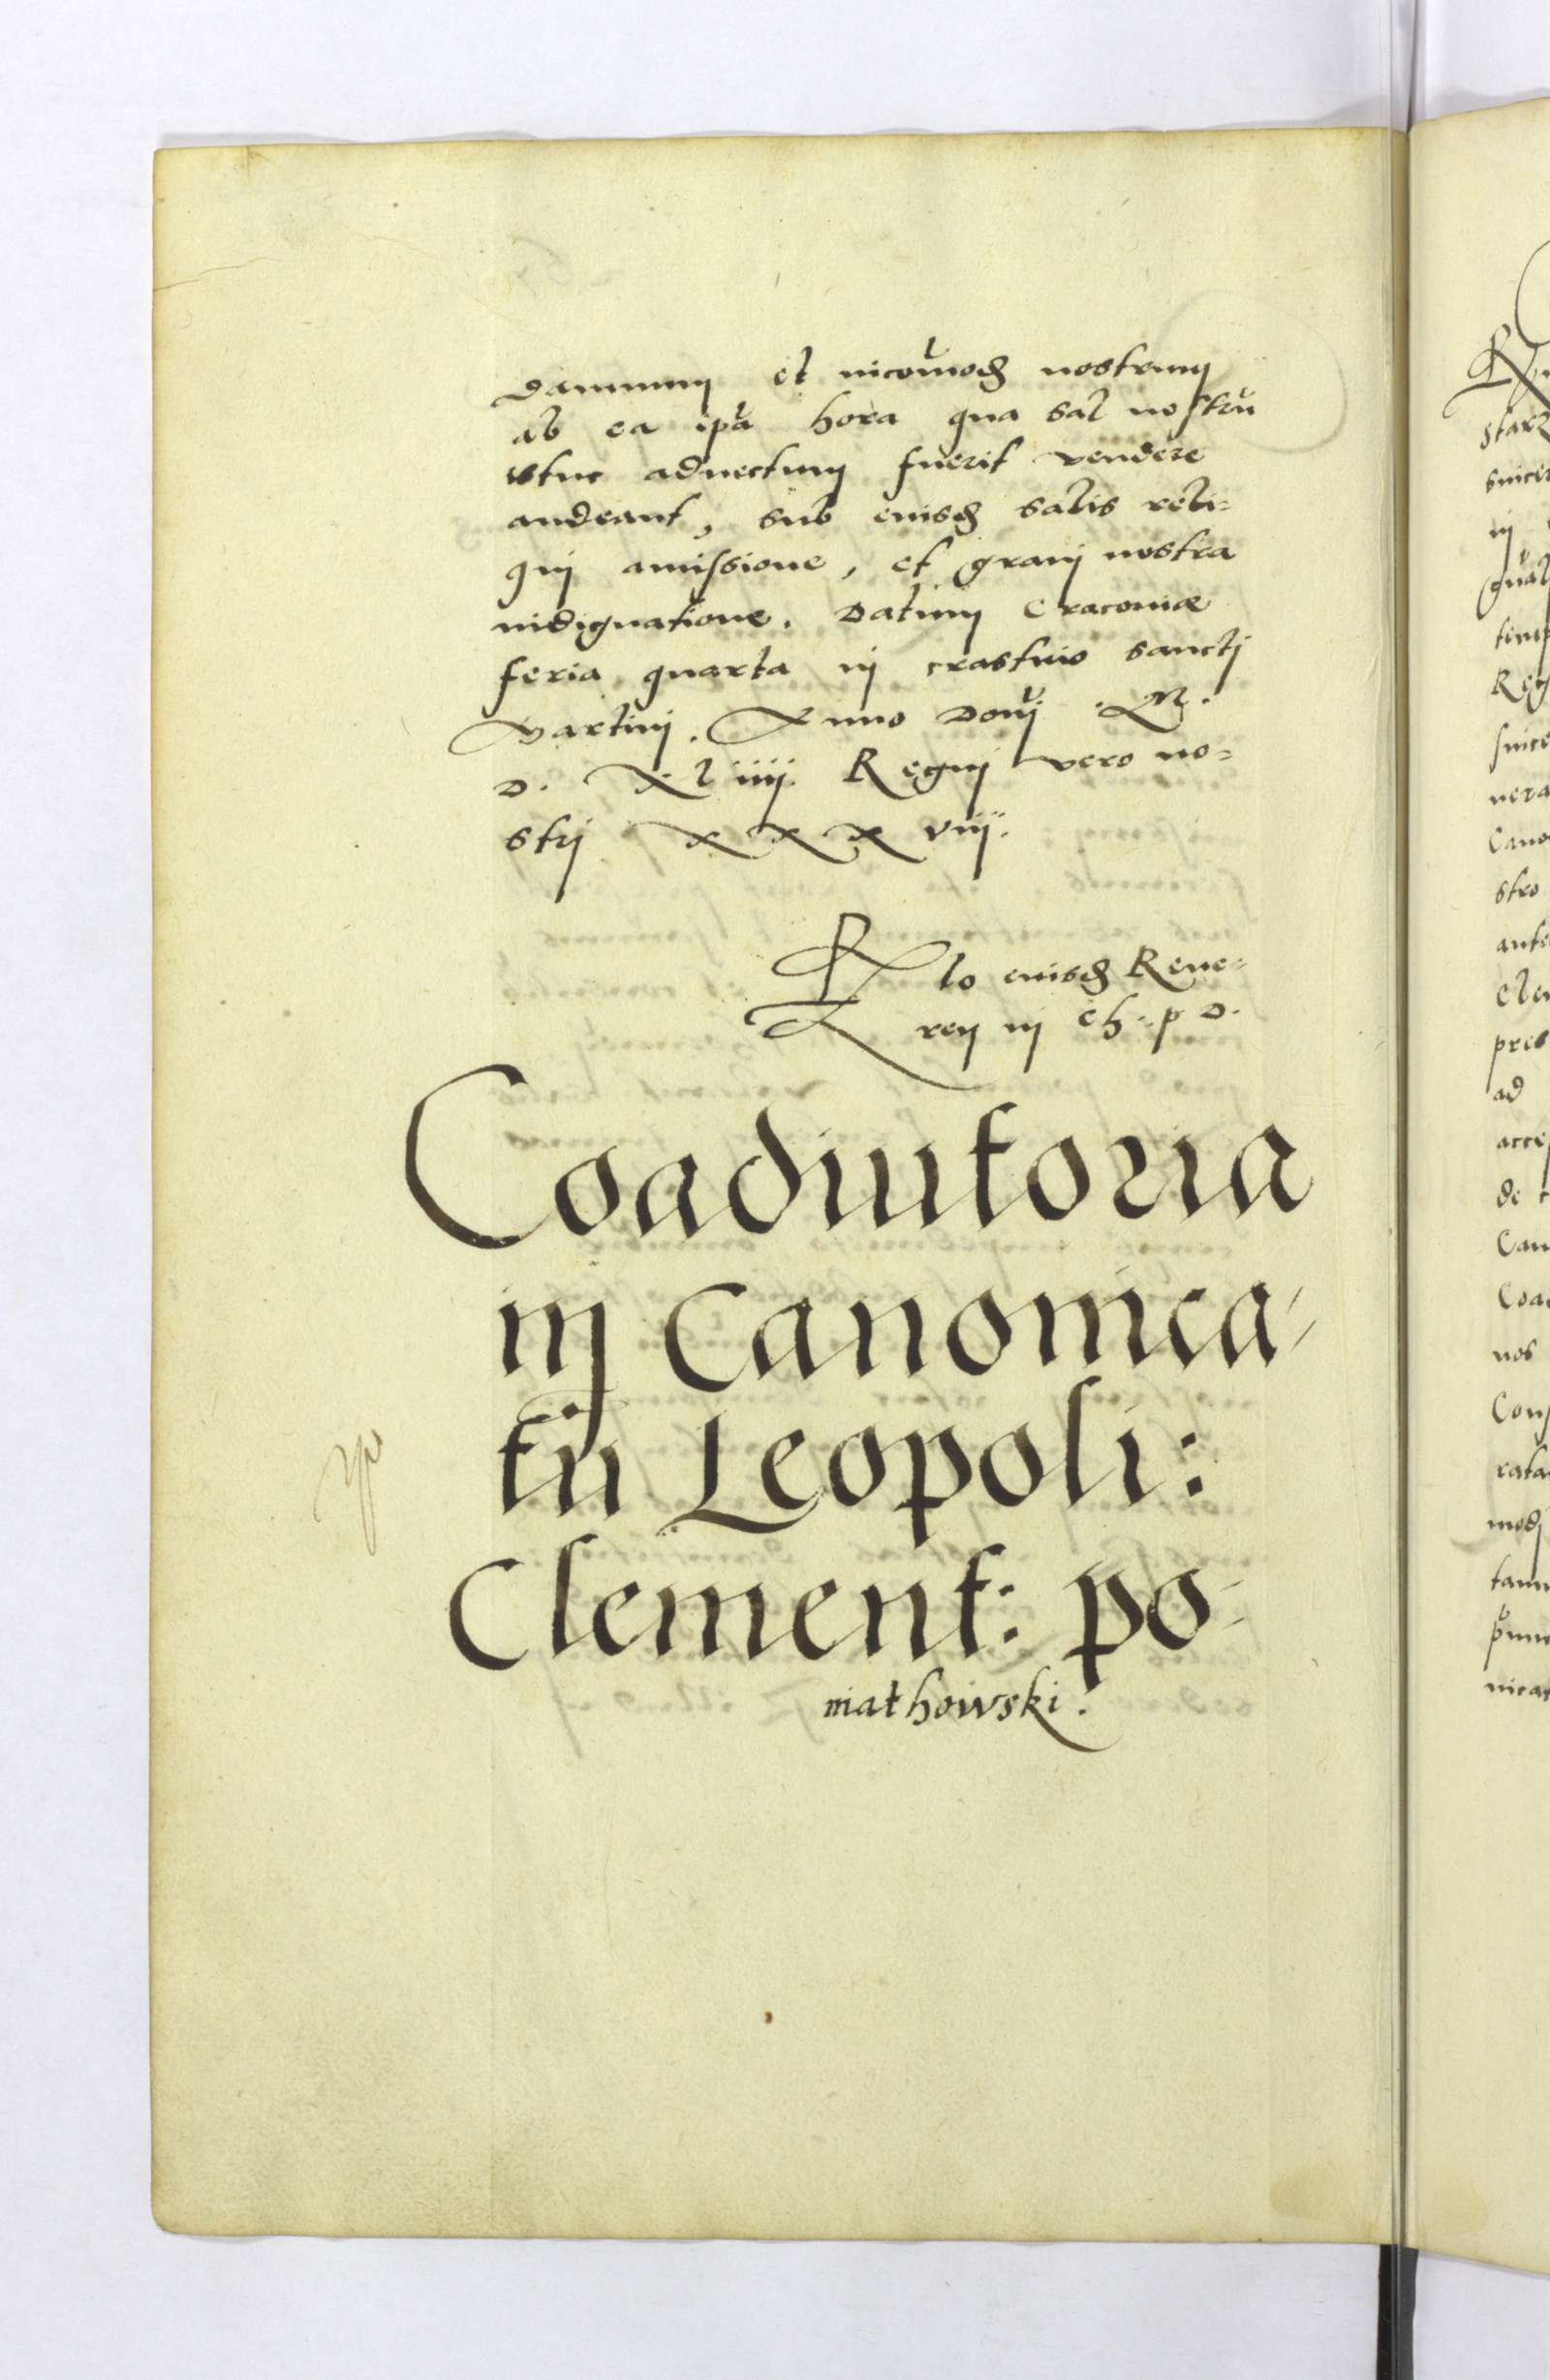 damnum et incom̃odũ nostrum
ab ea ip̃a hora qua sal nostrũ
istuc advectum fuerit vendere
audeant, sub eiusdẽ salis reli=
qui amissione, et gravi nostra
indignatione. Datum Cracoviæ
feria quarta in crastino sancti
Martini. Anno Domi .M.
D. Xliiii. Regni vero no=
stri XXX viii.
R̃lo eiusdẽ Reve=
ren in Ch. p D.
Coadiutoria
in Canonica-
tu Leopoli:
Clement: po-
niathowski.